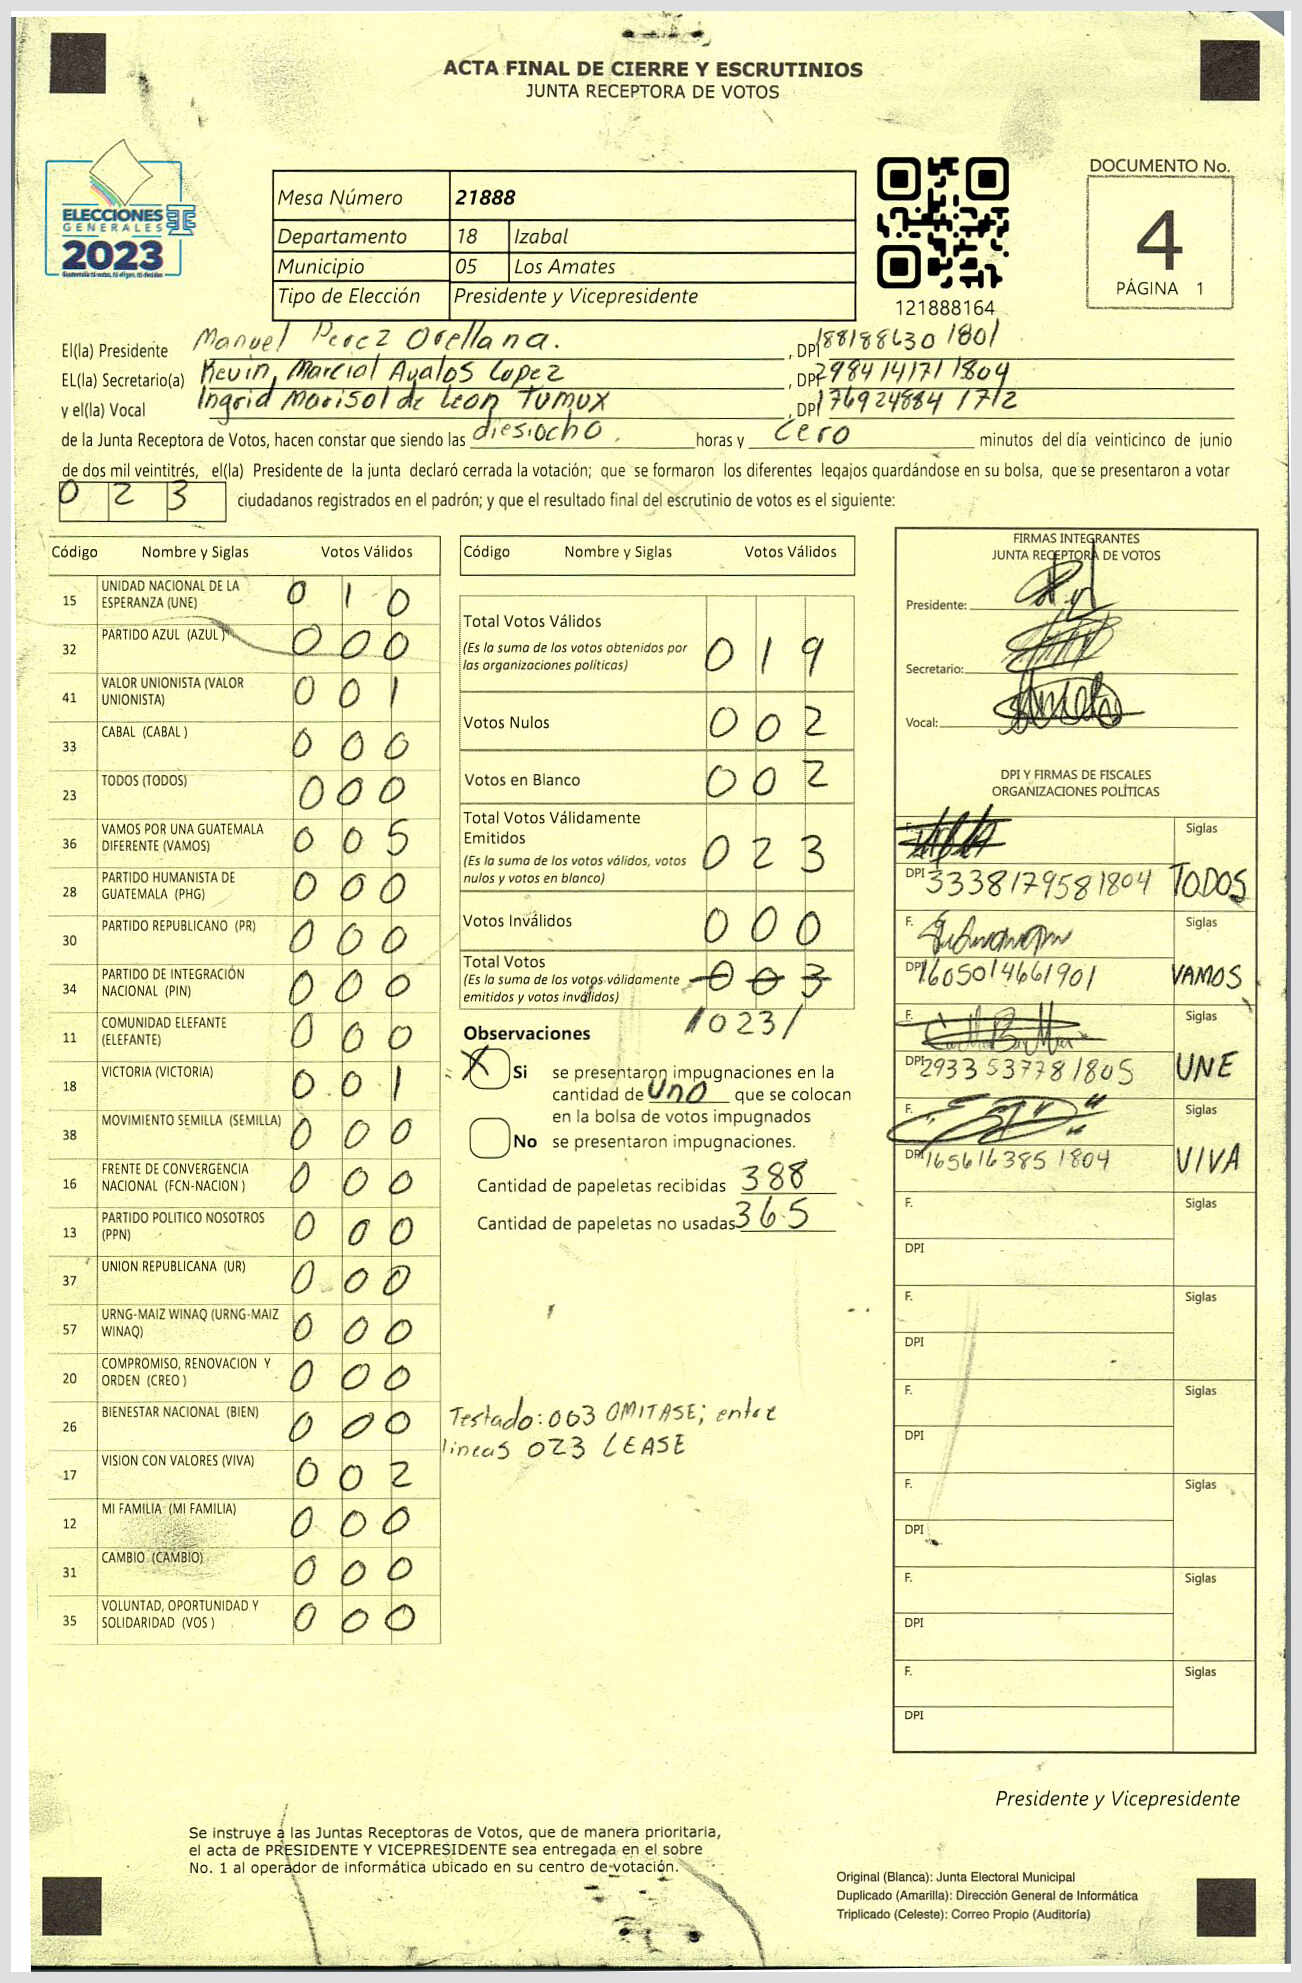 ACTA FINAL DE CIERRE Y ESCRUTINIOS
JUNTA RECEPTORA DE VOTOS
ELECCIONES
GENERALES
2023
Mesa Número 21888
Departamento 18 Izabal
Municipio 05 Los Amates
Tipo de Elección Presidente y Vicepresidente
121888164
DOCUMENTO No.
4
PÁGINA 1
El(la) Presidente Manuel Perez Orellana. , DPI 188188630 1801
EL(la) Secretario(a) Kevin, Marcial Ayalos Lopez , DPI 2984141711804
y el(la) Vocal Ingrid Marisol de Leon Tumux , DPI 176924884 1712
de la Junta Receptora de Votos, hacen constar que siendo las diesiocho. horas y cero minutos del día veinticinco de junio
de dos mil veintitrés, el(la) Presidente de la junta declaró cerrada la votación; que se formaron los diferentes legajos guardándose en su bolsa, que se presentaron a votar
0 2 3 ciudadanos registrados en el padrón; y que el resultado final del escrutinio de votos es el siguiente:
Código Nombre y Siglas Votos Válidos
15 UNIDAD NACIONAL DE LA ESPERANZA (UNE) 0 1 0
32 PARTIDO AZUL (AZUL) 0 0 0
41 VALOR UNIONISTA (VALOR UNIONISTA) 0 0 1
33 CABAL (CABAL ) 0 0 0
23 TODOS (TODOS) 0 0 0
36 VAMOS POR UNA GUATEMALA DIFERENTE (VAMOS) 0 0 5
28 PARTIDO HUMANISTA DE GUATEMALA (PHG) 0 0 0
30 PARTIDO REPUBLICANO (PR) 0 0 0
34 PARTIDO DE INTEGRACIÓN NACIONAL (PIN) 0 0 0
11 COMUNIDAD ELEFANTE (ELEFANTE) 0 0 0
18 VICTORIA (VICTORIA) 0 0 1
38 MOVIMIENTO SEMILLA (SEMILLA) 0 0 0
16 FRENTE DE CONVERGENCIA NACIONAL (FCN-NACION ) 0 0 0
13 PARTIDO POLITICO NOSOTROS (PPN) 0 0 0
37 UNION REPUBLICANA (UR) 0 0 0
57 URNG-MAIZ WINAQ (URNG-MAIZ WINAQ) 0 0 0
20 COMPROMISO, RENOVACION Y ORDEN (CREO ) 0 0 0
26 BIENESTAR NACIONAL (BIEN) 0 0 0
17 VISION CON VALORES (VIVA) 0 0 2
12 MI FAMILIA (MI FAMILIA) 0 0 0
31 CAMBIO (CAMBIO) 0 0 0
35 VOLUNTAD, OPORTUNIDAD Y SOLIDARIDAD (VOS ) 0 0 0
Código Nombre y Siglas Votos Válidos
Total Votos Válidos
(Es la suma de los votos obtenidos por
las organizaciones políticas) 0 1 9
Votos Nulos 0 0 2
Votos en Blanco 0 0 2
Total Votos Válidamente
Emitidos
(Es la suma de los votos válidos, votos
nulos y votos en blanco) 0 2 3
Votos Inválidos 0 0 0
Total Votos
(Es la suma de los votos válidamente
emitidos y votos inválidos) 0 0 3
/023/
Observaciones
X Si se presentaron impugnaciones en la
cantidad de uno que se colocan
en la bolsa de votos impugnados
No se presentaron impugnaciones.
Cantidad de papeletas recibidas 388
Cantidad de papeletas no usadas 365
Testado: 003 OMITASE; entre
lineas 023 LEASE
FIRMAS INTEGRANTES
JUNTA RECEPTORA DE VOTOS
Presidente:
Secretario:
Vocal:
DPI Y FIRMAS DE FISCALES
ORGANIZACIONES POLÍTICAS
F. Siglas
DPI 3338179581804 TODOS
F. Siglas
DPI 1605014661901 VAMOS
F. Siglas
DPI 2933537781805 UNE
F. Siglas
DPI 1656163851804 VIVA
F. Siglas
DPI
F. Siglas
DPI
F. Siglas
DPI
F. Siglas
DPI
F. Siglas
DPI
F. Siglas
DPI
Presidente y Vicepresidente
Se instruye a las Juntas Receptoras de Votos, que de manera prioritaria,
el acta de PRESIDENTE Y VICEPRESIDENTE sea entregada en el sobre
No. 1 al operador de informática ubicado en su centro de votación.
Original (Blanca): Junta Electoral Municipal
Duplicado (Amarilla): Dirección General de Informática
Triplicado (Celeste): Correo Propio (Auditoría)